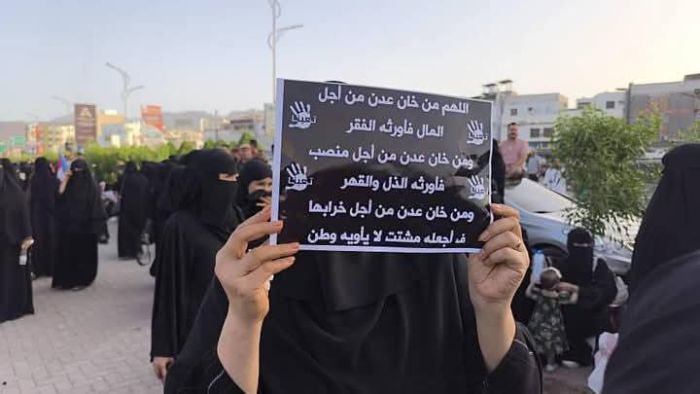 اللهم من خان عدن من أجل
المال فأورثه الفقر
ومن خان عدن من أجل منصب
فأورثه الذل والقهر
ومن خان عدن من أجل خرابها
فـاجعله مشتت لا يأويه وطن
تعبنا
تعبنا
تعبنا
تعبنا